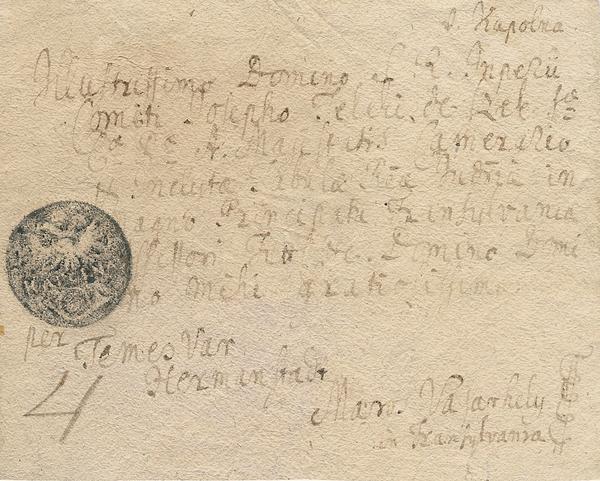 v. Kapolna
Illustrissimo Domino S. R. Imperii
Comiti Josepho Teleki de Szek
A. Majestatis Camerario
Inclytæ Tabulæ in
Magno Principatu Transylvania
de Domino Domi
no mihi Gratiosissimo
per Temes Var
Hermanstadt
4
Maros Vasarhely
in Transylvania